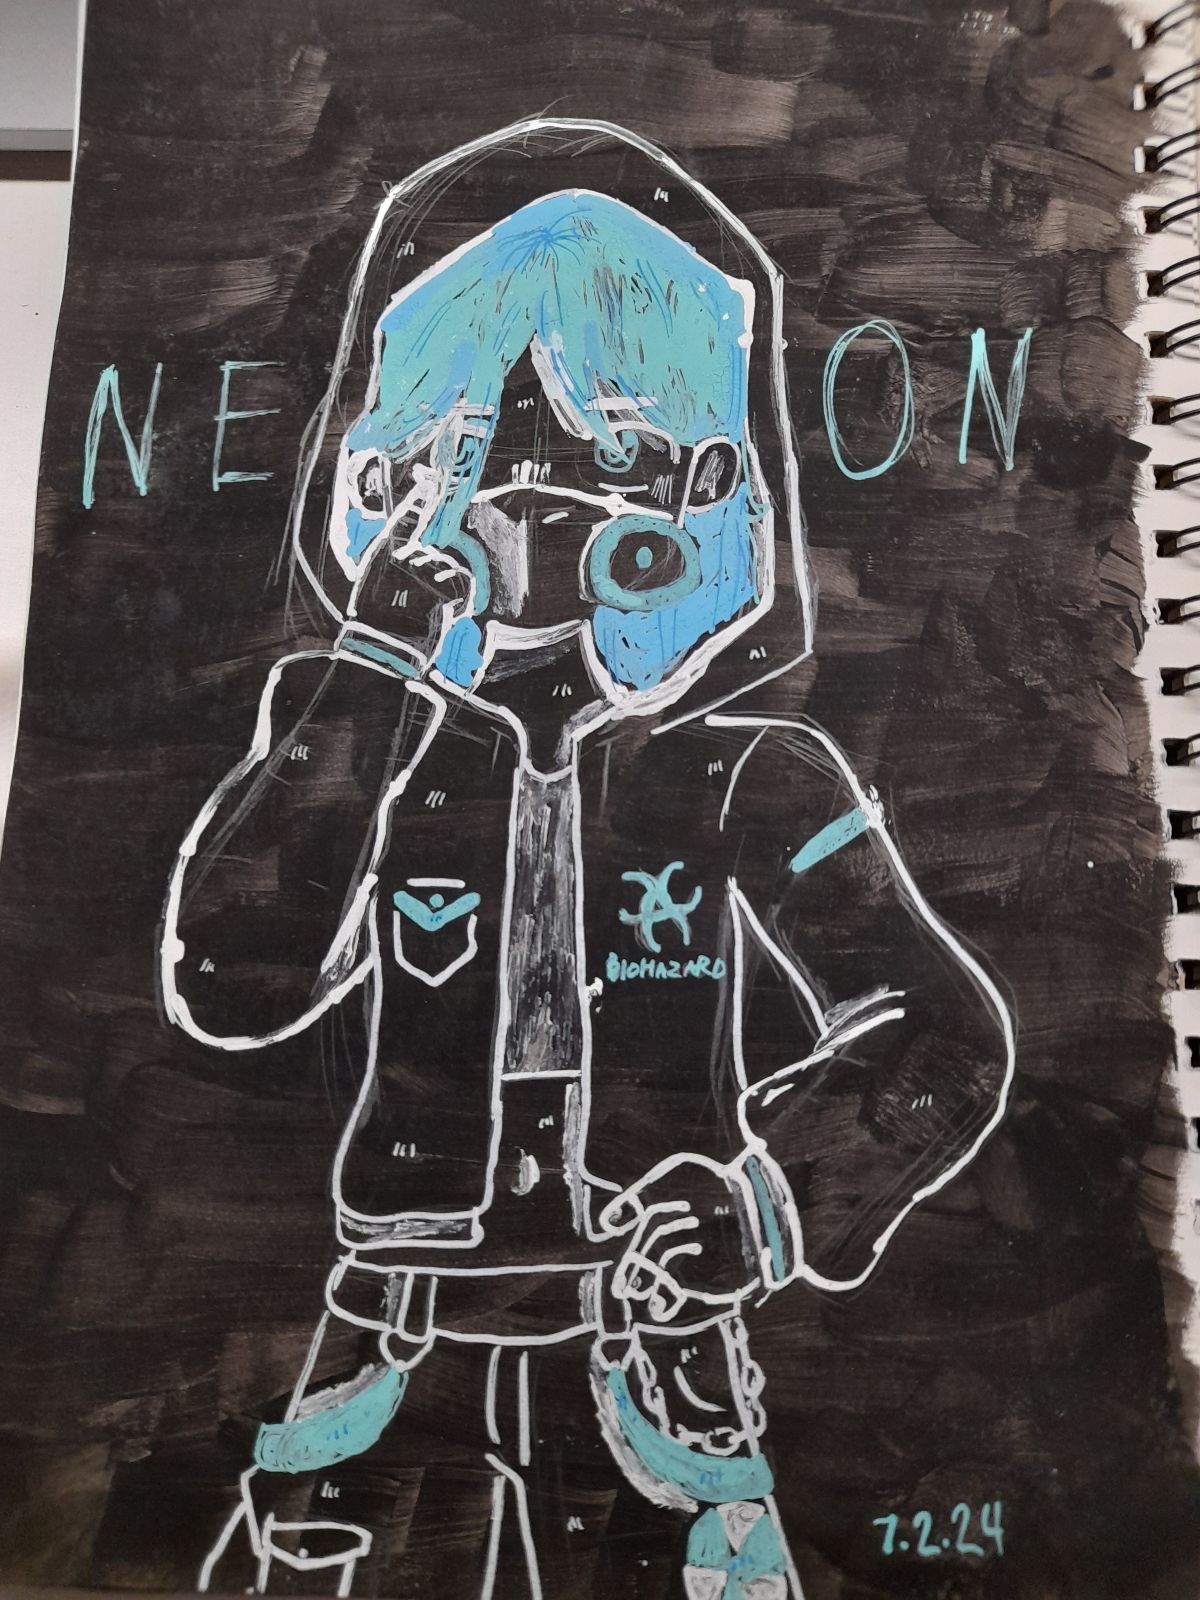 NEON
BIOHAZARD
7.2.24